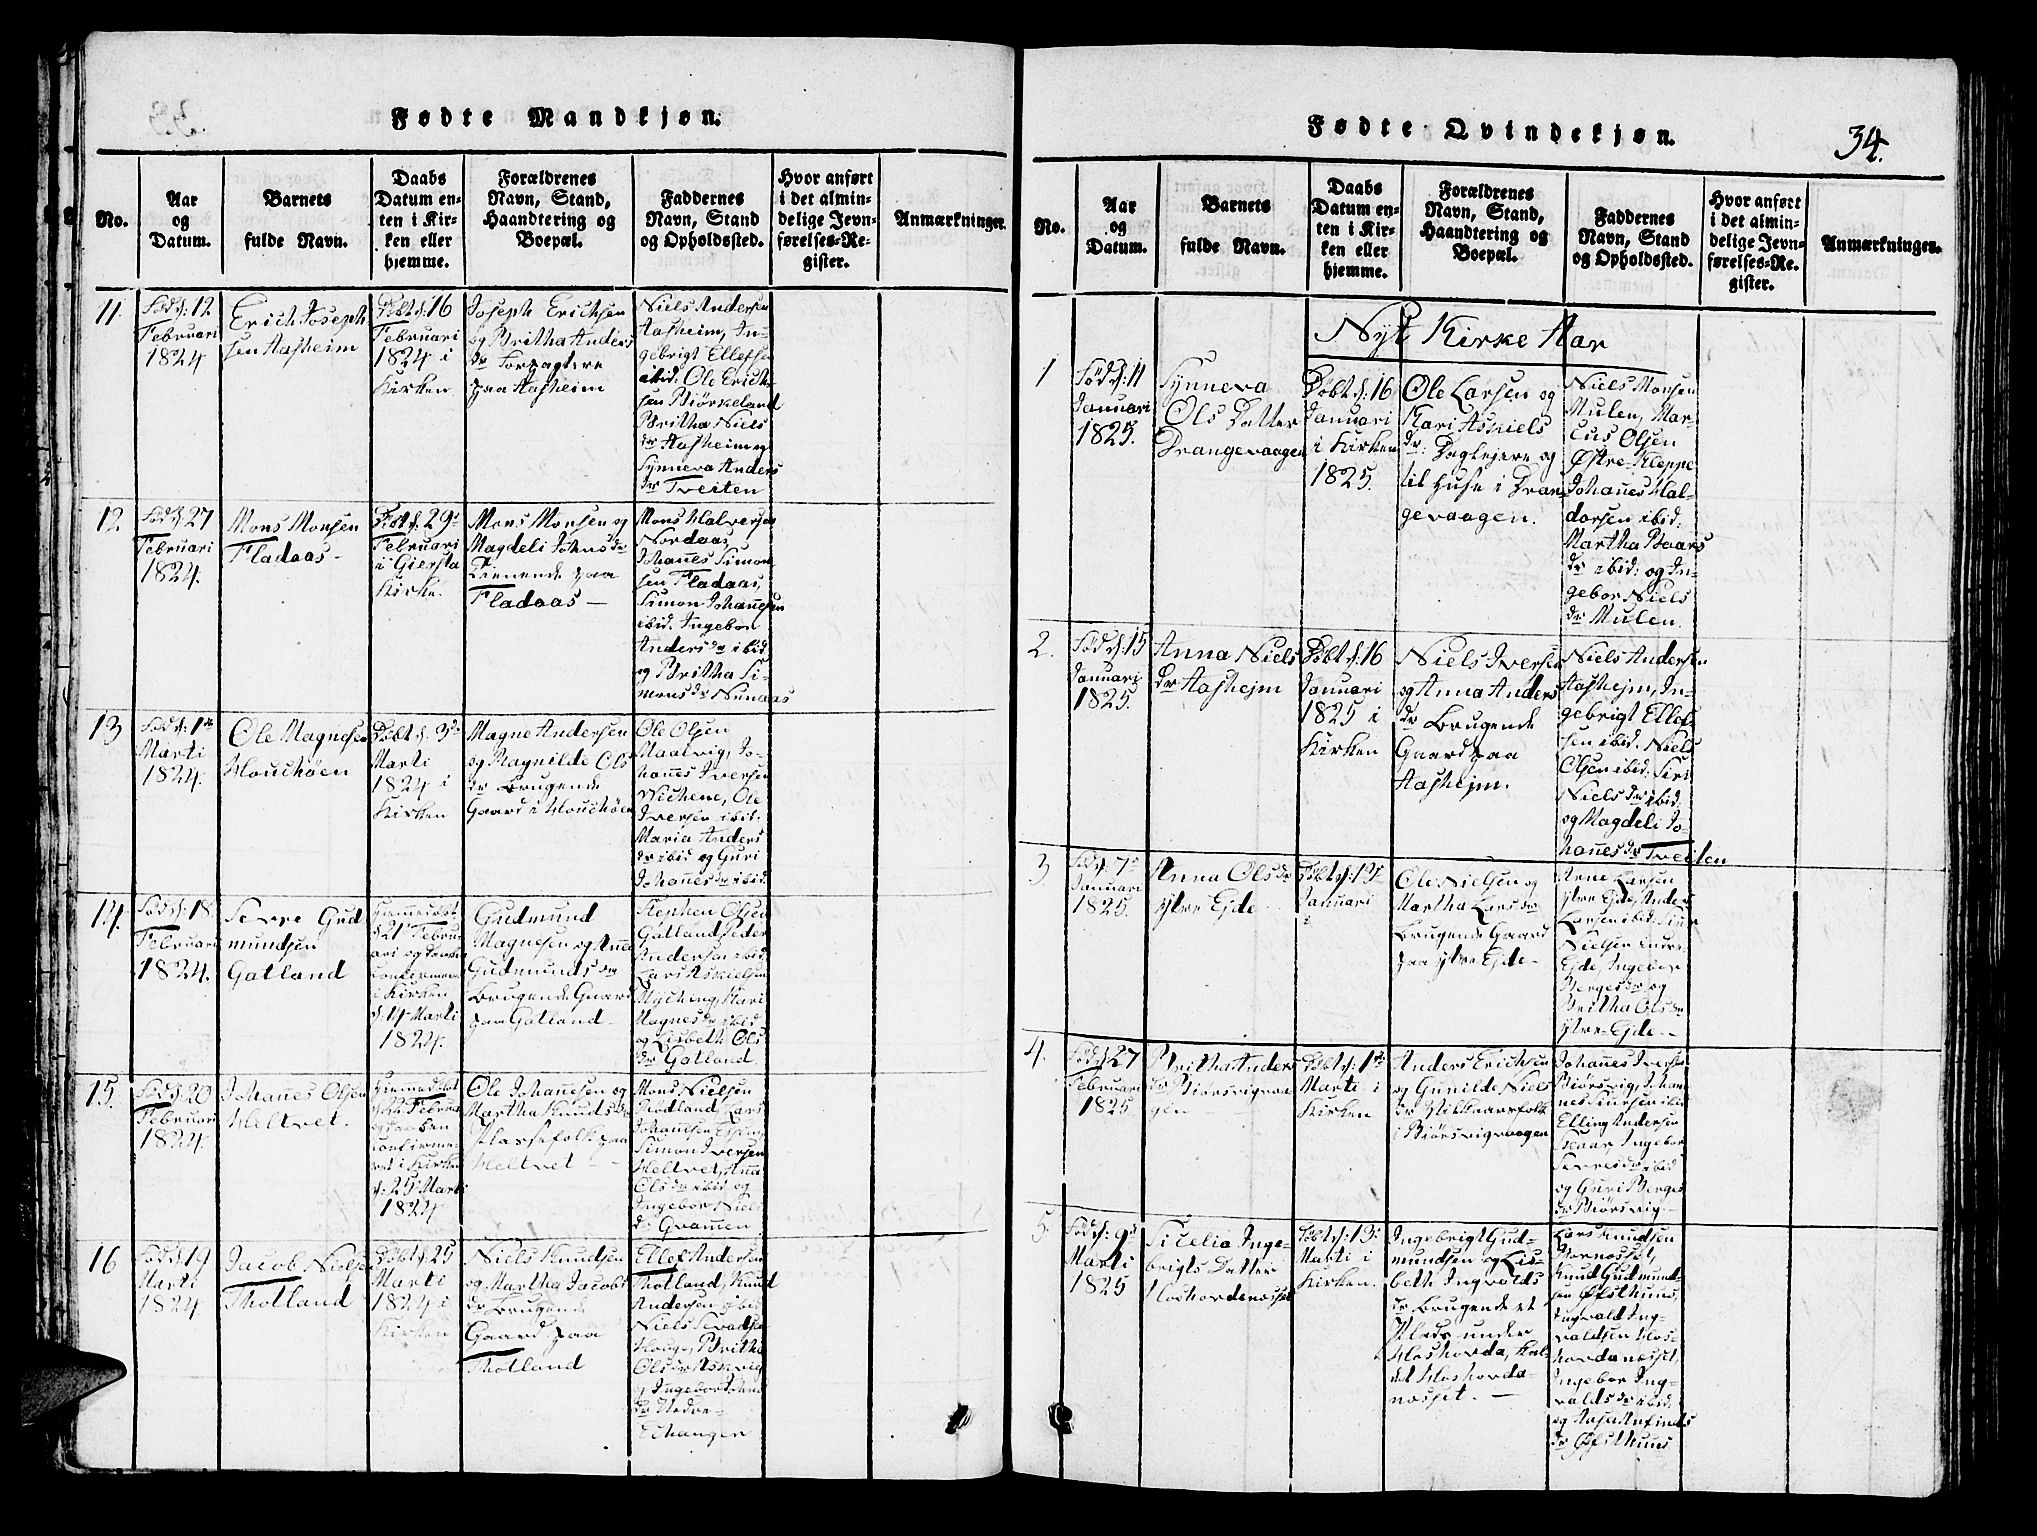 Fødte Mandkjøn.
No.
Aar
og
Datum.
Barnets
fulde Navn.
Daabs
Datum en-
ten i Kir-
ken eller
hjemme.
Forældrenes
Navn, Stand,
Haandtering og
Boepæl.
Faddernes
Navn, Stand
og Opholdssted.
Hvor anført
i det almin-
delige Jevn-
førelses-Re-
gister.
Anmærkninger.
11.
Fød d: 12
Februari
1824
Erich Joseph
sen Aasheim
Døbt d: 16
Februari
1824 i
Kirken
Joseph Erichsen
og Britha Anders
dr Forpagtere
paa Aasheim
Niels Andersen
Aasheim, In-
gebrigt Ellefsen
ibid: Ole Erich-
sen Biørkeland
Britha Niels
dr Aasheim og
Synneva Anders
dr Tveiten
12.
Fød d: 27
Februari
1824.
Mons Monsen
Fladaas -
Døbt d: 29
Februari
i Giersta
Kirke.
Mons Monsen og
Magdeli Johns dr
Tienende paa
Fladaas -
Mons Halversen
Nordaas,
Johanes Simon
sen Fladaas,
Simon Johannesen
ibid. Ingebor
Anders dr ibid
og Britha Si-
mons dr Nunaas
13
Fød d: 1
Marti
1824.
Ole Magnesen
Houchøen
Døbt d: 3
Marti
1824 i
Kirken
Magne Andersen
og Ragnilde Ols
dr Brugende
Gaard i Houchøen
Ole Olsen
Maalvig, Jo-
hannes Iversen
Wichene, Ole
Iversen ibid.
Maria Anders
dr ibid og Guri
Johanes dr ibid.
14.
Fød d: 18
Februari
1824.
Sevre Gud
mundsen
Gatland
Hiemmedøbt
d 21 Februa-
ari og
confirmeret
i Kirken
d: 14 Marti
1824.
Gudmund
Magnesen og Anna
Gudmunds dr
Brugende Gaard
paa Gatland -
Stephen Olsen
Gatland, Peder
Andersen ibid
Lars Askielsen
Myching, Kari
Magnes dr ibid
og Lisbeth Ols
dr Gatland.
15.
Fød d 20
Februari
1824.
Johanes Olsen
Heltvet.
Hiemmedøbt
d 22 Februa
confirme-
ret i Kirken
d: 25 Marti
1824
Ole Johannesen og
Martha Knuds dr
Plassefolk paa
Heltvet -
Mons Nielsen
Rødland, Lars
Johannesen
Simon Iversen
Heltvet, Anna
Ols dr ibid og
Ingebor Niels
dr Grammen
16
Fød d: 19
Marti
1824
Jacob Nielsen
Thotland
Døbt d: 25
Marti
1824 i
Kirken
Niels Knudsen
og Martha Jacobs
dr Brugende
Gaard paa
Thotland
Ellef Andersen
Thotland, Knud
Andersen ibid
Niels Sevadsen
Houge, Britha
Ols dr Askvig
og Ingebor Johns
dr Nedre-
Echanger
Fødte Qvindekjøn.
34.
No.
Aar
og
Datum.
Barnets
fulde Navn.
Daabs
Datum en-
ten i Kir-
ken eller
hjemme.
Forældrenes
Navn, Stand,
Haandtering og
Boepæl.
Faddernes
Navn, Stand
og Opholdssted.
Hvor anført
i det almin-
delige Jevn-
førelses-Re-
gister.
Anmærkninger.
Nyt Kirke Aar
1
Fød d: 11
Januari
1825.
Synneva
Ols Datter
Drangevaagen
Døbt d: 16
Januari
i Kirken
1825.
Ole Larsen og
Kari Askiels
dr: Daglejere og
til Huse i Dran
gevaagen.
Niels Monsen
Mulen, Mar-
cus Olsen
Østre-Kleppe
Johanes Hal-
dorsen ibid:
Martha Baars
dr ibid: og In-
gebor Niels
dr Mulen.
2.
Fød d: 15
Januari
1825.
Anna Niels
dr Aashejm
Døbt d: 16
Januari
1825 i
Kirken
Niels Iversen
og Anna Anders
dr Brugende
Gaard paa
Aashejm.
Niels Andersen
Aashejm, In-
gebrigt Ellef-
sen ibid. Niels
Olsen ibid: Siri
Niels dr ibid.
og Magdeli Jo-
hanes dr Tveiten
3
Fød d. 7
Januari
1825.
Anna Ols dr
ytre Ejde
Døbt d: 13
Januari
Ole Nielsen og
Martha Lars dr
Brugende Gaard
paa ytre Ejde -
Arne Larsen
ytre Ejde, Anders
Larsen ibid.
Nielsen indre
Ejde, Ingebor
Berges dr og
Britha Ols dr
ytre Ejde -
4.
Fød d 27
Februari
1825
Britha Anders
dr Biørsvigvaa
gen
Døbt d: 1
Marti i
Kirken
Anders Erichsen
og Gunilde Niels
dr Vilkaarsfolk
i Biørsvigvaagen
Johanes Iversen
Biørsvig, Johan
nes ibid
Elling Andersen
Ingebor
Sevres dr ibid
og Guri Berges
dr Biørsvig.
5.
Fød d: 9
Marti
1825
Sicelia Inge-
brigts Datter
Hoshovdenosset
Døbt d: 13
Marti i
Kirken.
Ingebrigt Gud-
mundsen og Lis-
beth Ingvalds
dr Brugende et
Plads under
Hoshovda, kal-
det Hoshovda-
nosset. -
Lars Knudsen
Knud Gudmund-
sen Øfsthuus,
Ingvald Ing-
valdsen Hos-
hovdenosset,
Ingebor Ing-
valds dr ibid.
og Aasa Anfinds
dr Øfsthuus